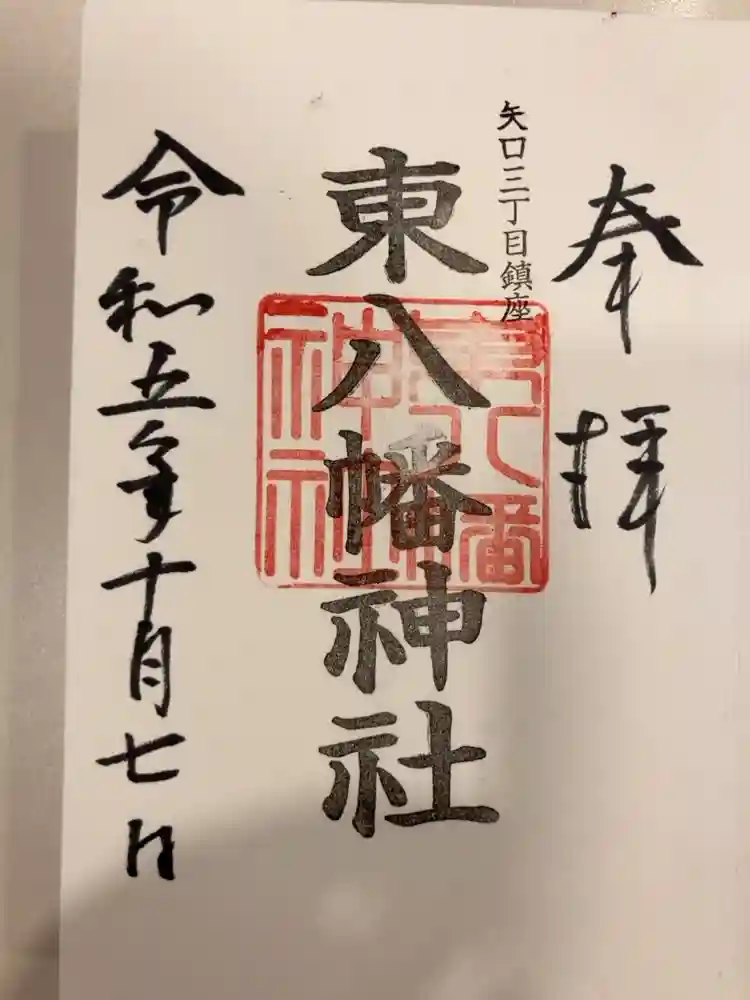 奉拝
矢口三丁目鎮座
東八幡神社
東八幡神社
令和五年十月七日